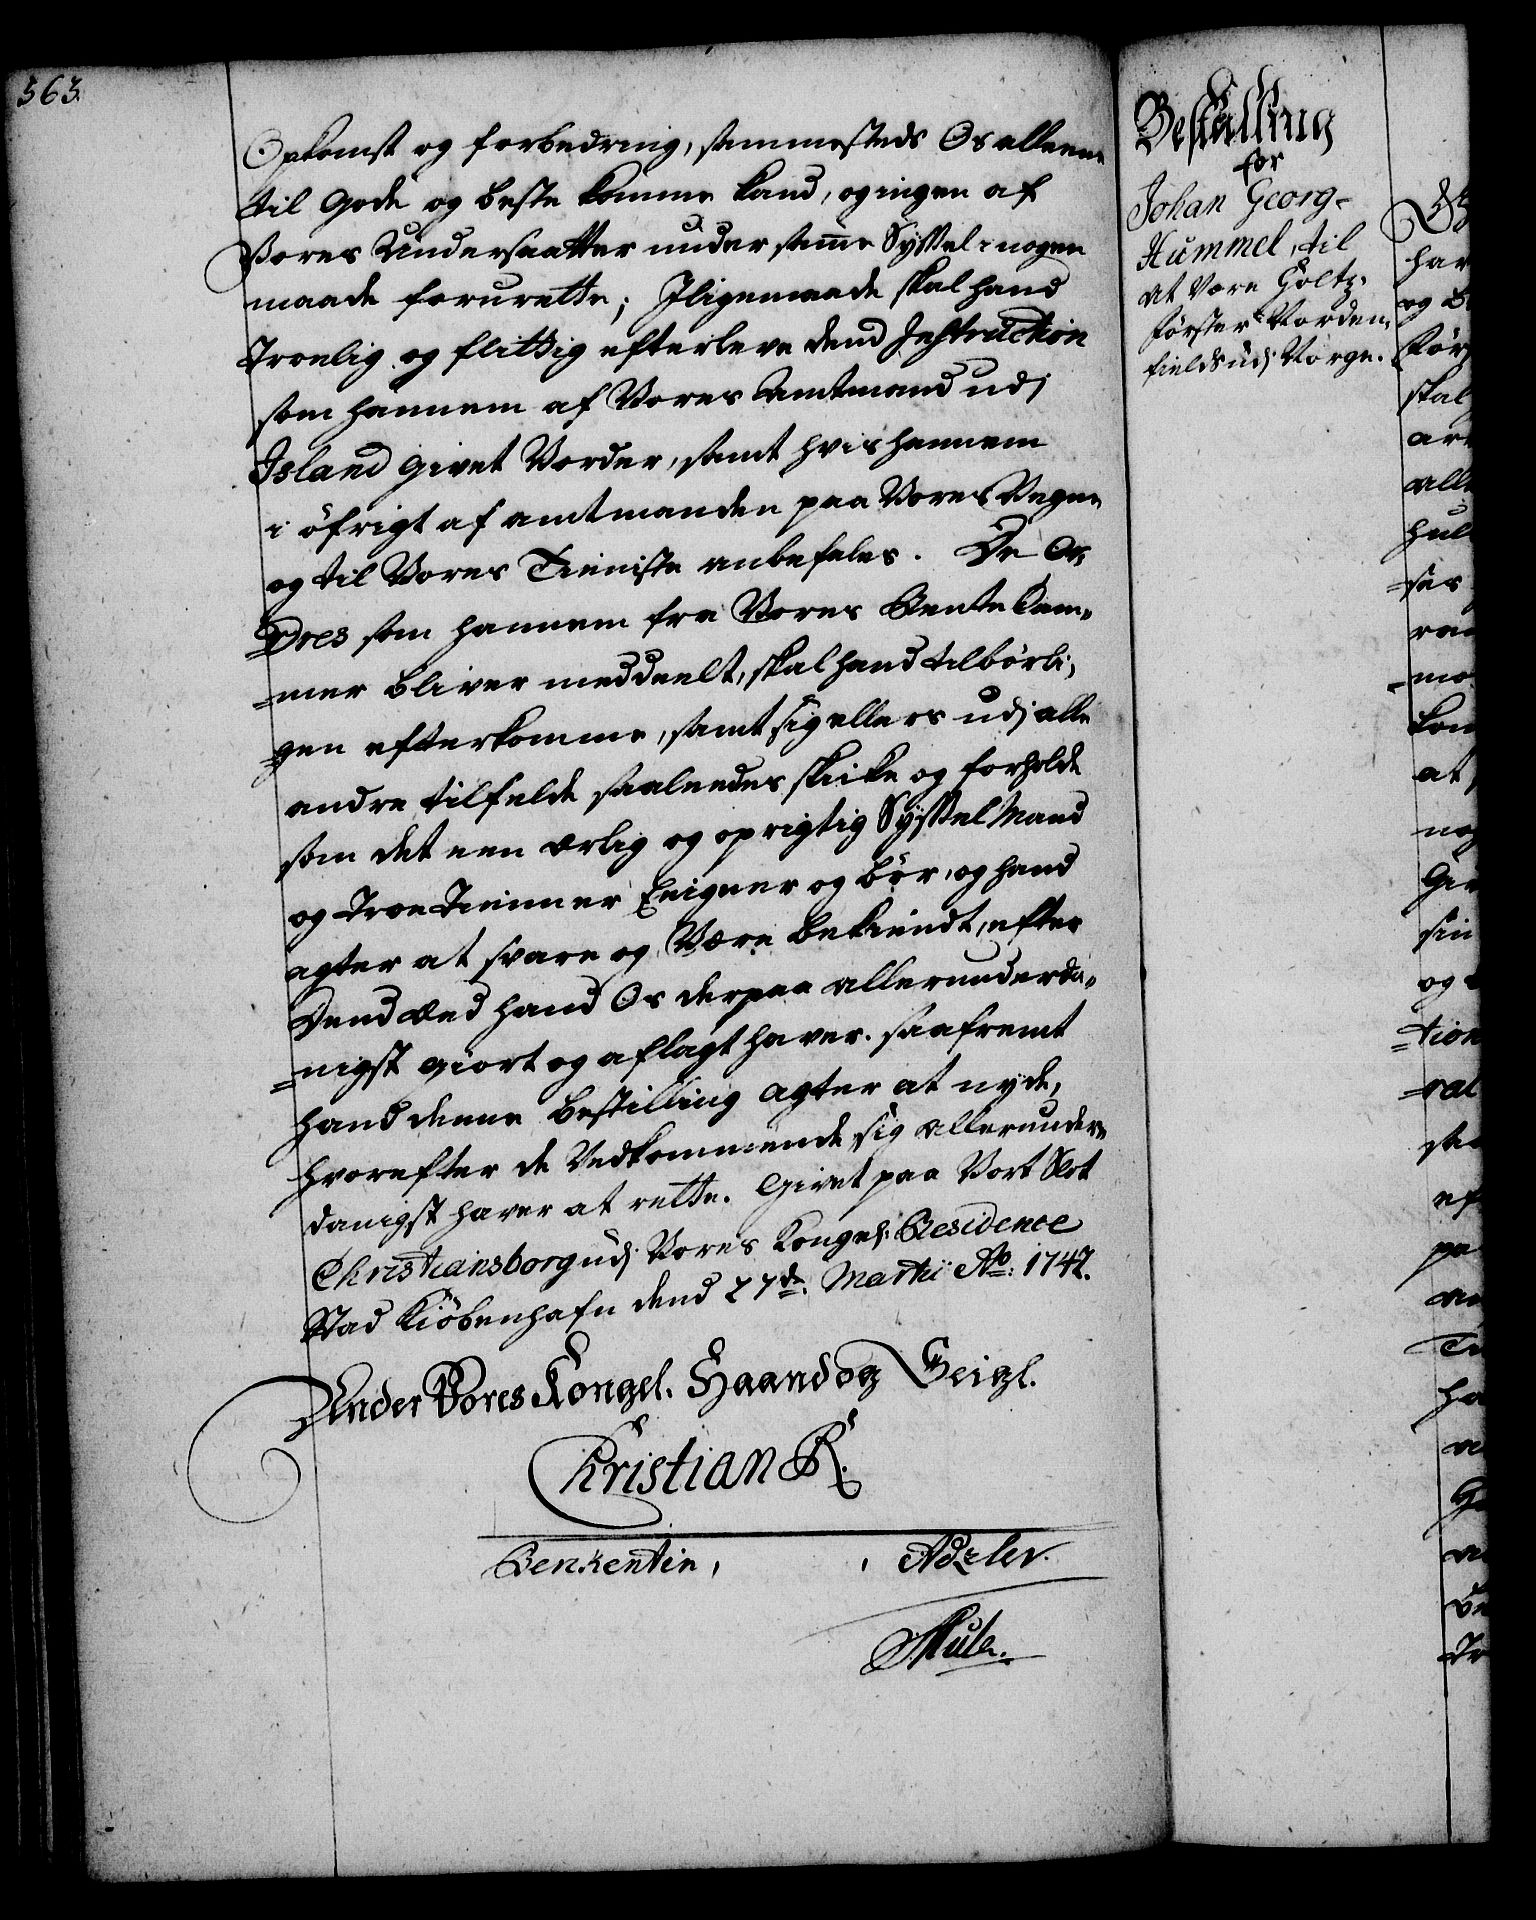 563.
Opkomst og forbedring, sammesteds Os alleene
til gode og beste komme kand, og ingen af
Vores Undersaatter under samme Syssel i nogen
maade forurette; Iligemaade skal hand
troelig og flittig efterleve dend Instruction
som hannem af Vores Amtmand udj
Island givet vorder, samt hvis hannem
i öfrigt af amtmanden paa Vores Vegne
og til Vores Tieniste anbefales. De Or-
dres som hannem fra Vores Rente Cam-
=mer bliver meddeelt, skal hand tilbörli-
gen efterkomme, samt sig ellers udj alle
andre tilfelde saaleedes skicke og forholde
som det een ærlig og oprigtig Syssel Mand
og troe Tienner eigner og bör, og hand
agter at svare og Være bekiendt, efter
Dend Æed hand Os derpaa allerunderda-
=nigst giort og aflagt haver. saafremt
hand denne bestilling agter at nyde,
hvorefter de Vedkommende sig allerunder-
danigst haver at rette. Givet paa Vort Slot
Christiansborg udj Vores Kongel: Residence
Stad Kiöbenhafn dend 27de Martii Ao: 1742.
Under Vores Kongel. Haand og Seigl.
Christian R.
Berkentin, , Adeler.
Mule.
Bestalling
for
Johan Georg
Hummel, til
at Være Holtz-
förster Norden-
fields udj Norge.
har
og
för
skal
all
hul
at
sin
og
=tion
ha